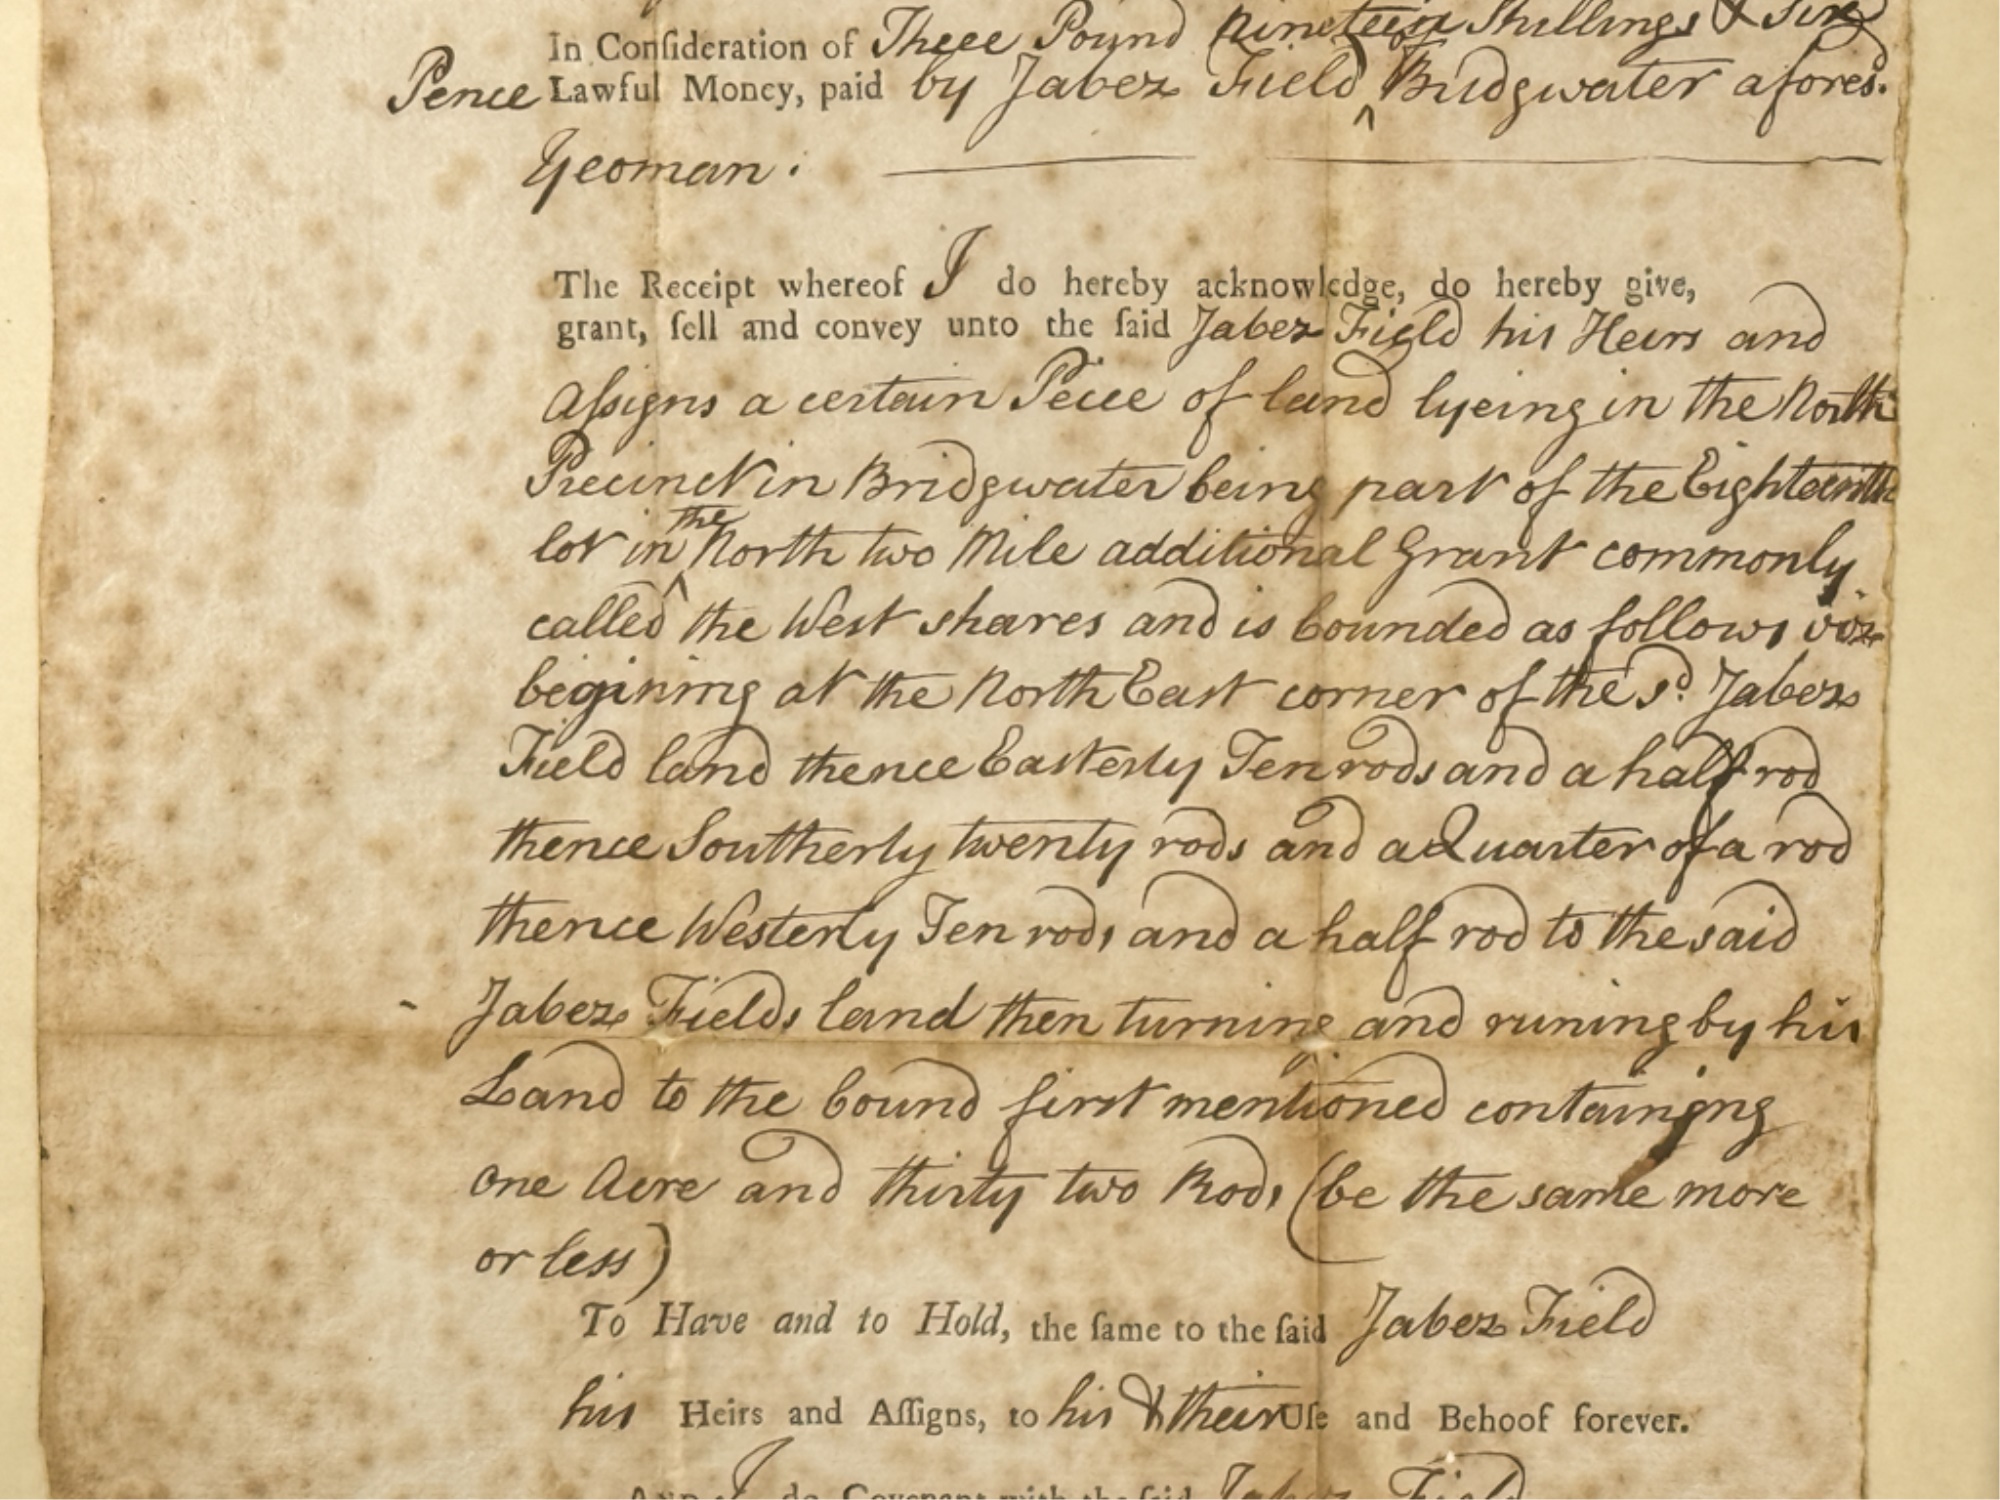 In Conſideration of Three Pound nineteen Shillings & Six
Pence Lawful Money, paid by Jabez Field of Bridgwater afores.
Yeoman.
The Receipt whereof I do hereby acknowledge, do hereby give,
grant, ſell and convey unto the ſaid Jabez Field his Heirs and
Aſsigns a certain Peice of land lyeing in the North
Precinct in Bridgwater being part of the Eighteenth
lot in the North two Mile additional Grant commonly
called the West shares and is bounded as follows viz
begining at the North East corner of the sd. Jabez
Field land thence Easterly Ten rods and a half rod
thence Southerly twenty rods and a Quarter of a rod
thence Westerly Ten rods and a half rod to the said
Jabez Fields land then turning and runing by his
Land to the bound first mentioned containing
one Acre and thirty two Rods (be the same more
or less)
To Have and to Hold, the ſame to the ſaid Jabez Field
his Heirs and Aſſigns, to his & their Uſe and Behoof forever.
AND I do Covenant with the ſaid Jabez Field